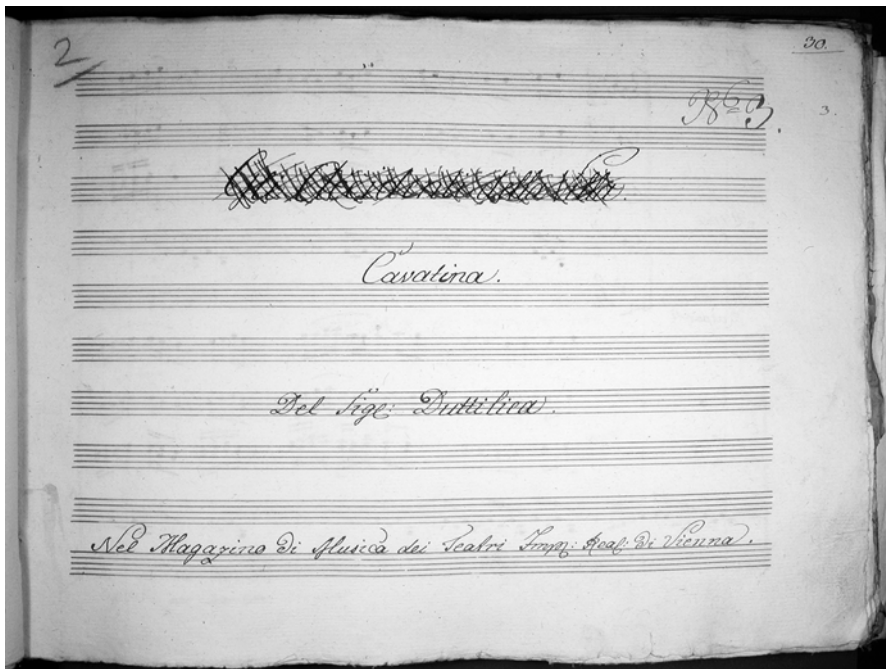 2
30.
No 3.
3.
Cavatina.
Del Sigr: Duttilieu.
Nel Magazino di Musica dei Teatri Impn: Real: di Vienna.